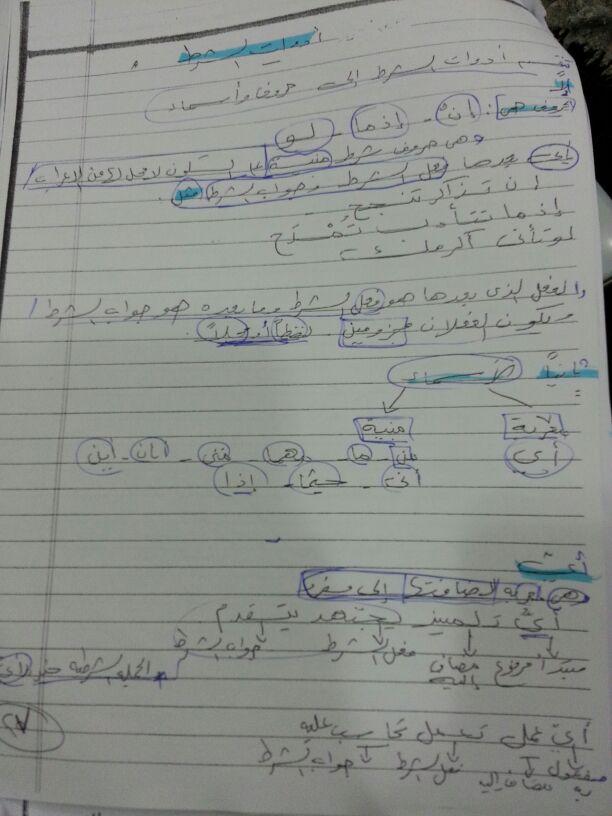 أدوات الشرط
تقسم أدوات الشرط إلى حروف وأسماء
أولاً
الحروف هي: إنْ - إذما - لو
وهي حروف شرط مبنية على السكون لا محل لها من الإعراب
يأتي بعدها فعل الشرط وجواب الشرط مثل
إن تذاكر تنجح
إذما تتأدب تُمْدَح
لو تأنى
والفعل الذي بعدها هو فعل الشرط وما بعده هو جواب الشرط
ويكون الفعلان مجزومين لفظاً أو محلاً.
ثانياً الأسماء
معربة مبنية
أي من - ما - مهما - متى - أيان - أين
أنى - حيثما - إذا
أيّ
وهي معربة لإضافتها إلى مفرد
أيُّ تلميذ يجتهد يتقدم
مبتدأ مرفوع مضاف إليه فعل الشرط جواب الشرط الجملة الشرطية خبر أي
أيَّ عمل تعمل تحاسب عليه
مفعول به مضاف إليه فعل الشرط جواب الشرط